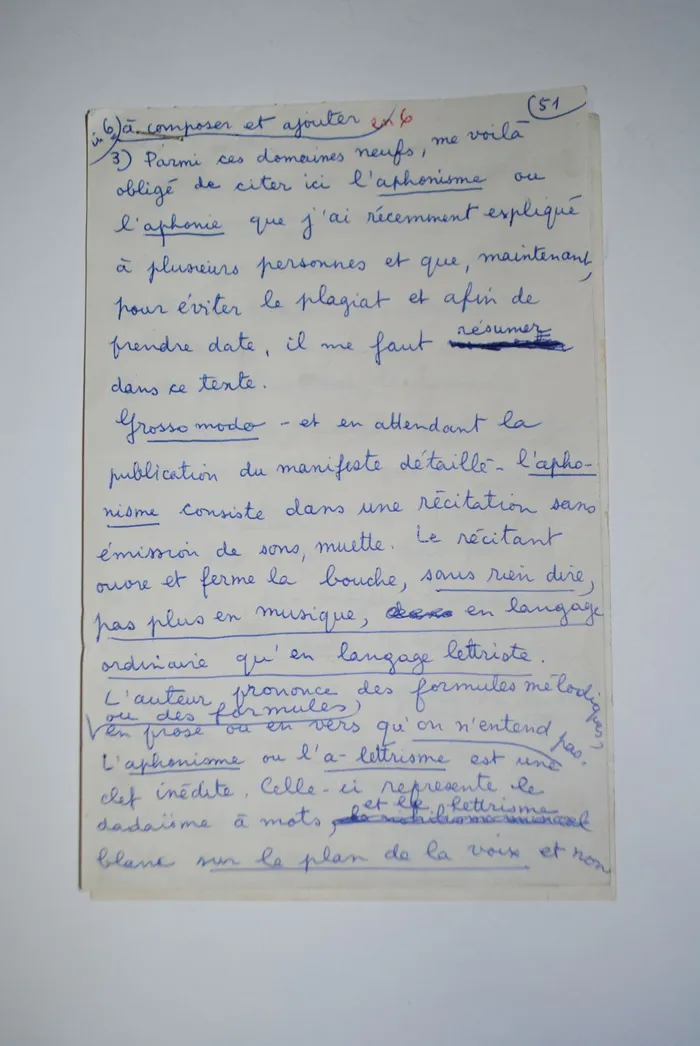 (51
in 6) à composer et ajouter en 6
3) Parmi ces domaines neufs, me voilà
obligé de citer ici l'aphonisme ou
l'aphonie que j'ai récemment expliqué
à plusieurs personnes et que, maintenant,
pour éviter le plagiat et afin de
prendre date, il me faut résumer
dans ce texte.
Grosso modo - et en attendant la
publication du manifeste détaillé - l'apho-
nisme consiste dans une récitation sans
émission de sons, muette. Le récitant
ouvre et ferme la bouche, sans rien dire,
pas plus en musique, en langage
ordinaire qu'en langage lettriste.
L'auteur prononce des formules mélodiques,
ou des formules
en prose ou en vers qu'on n'entend pas.
L'aphonisme ou l'a-lettrisme est une
clef inédite. Celle-ci represente le
et le lettrisme
dadaïsme à mots,
blanc sur le plan de la voix et non